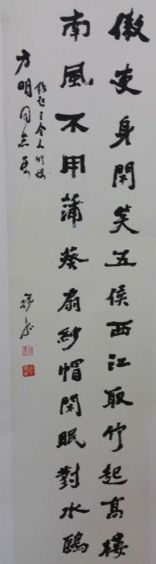 傲吏身閑笑五侯西江取竹起高樓
南風不用蒲葵扇紗帽閑眠對水鷗
方明同志属